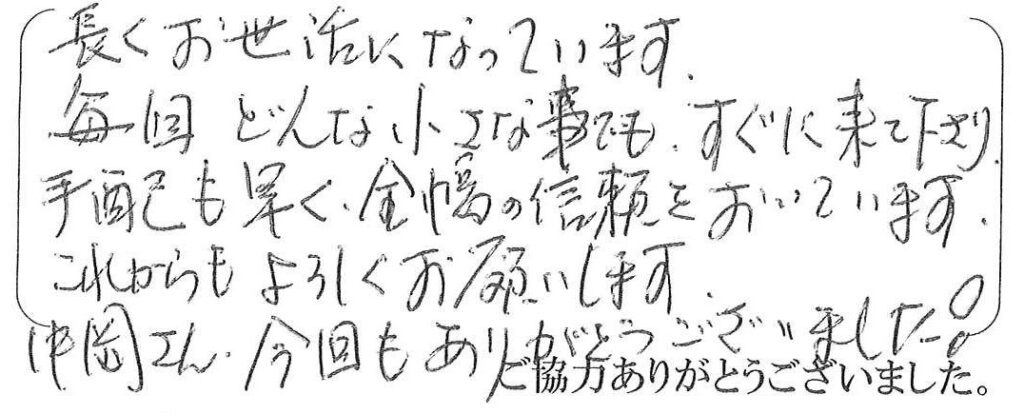 長くお世話になっています.
毎回 どんな小さな事でも、すぐに来て下さり、
手配も早く、全幅の信頼をおいています.
これからもよろしくお願いします.
中岡さん. 今回もありがとうございました!
ご協力ありがとうございました。